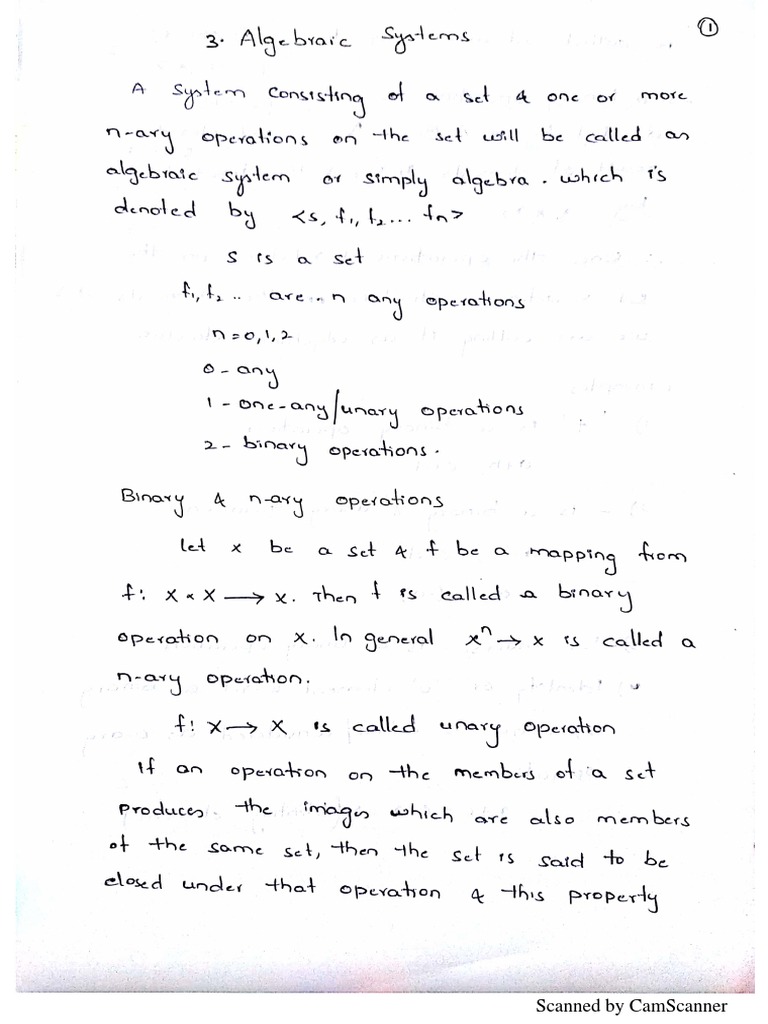 3. Algebraic Systems
1
A System consisting of a set & one or more
n-ary operations on the set will be called as
algebraic system or simply algebra. which is
denoted by <s, f1, f2... fn>
S is a set
f1, f2 .. are .. n any operations
n=0,1,2
0 - any
1 - one-any/unary operations
2 - binary operations.
Binary & n-ary operations
let x be a set & f be a mapping from
f: X × X → X. Then f is called a binary
operation on X. In general xⁿ → x is called a
n-ary operation.
f: X → X is called unary operation
If an operation on the members of a set
produces the images which are also members
of the same set, then the set is said to be
closed under that operation & this property
Scanned by CamScanner